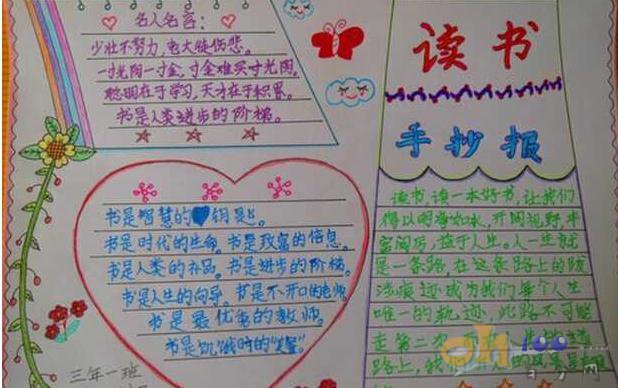 名人名言:
少壮不努力,老大徒伤悲。
一寸光阴一寸金,寸金难买寸光阴,
聪明在于学习,天才在于积累。
书是人类进步的阶梯。
读书
手抄报
书是智慧的钥匙。
书是时代的生命。书是致富的信息。
书是人类的补品。书是进步的阶梯。
书是人生的向导。书是不开口的老师
书是最优秀的教师。
书是饥饿时的
读书,读一本好书,让我们
得以明净如水,开阔视野,丰
富阅历,益于人生。人一生就
是一条路,在这条路上的跋
涉痕迹成为我们每个人生
唯一的轨迹,此路不可能
走第二次
路上,我
三年一班